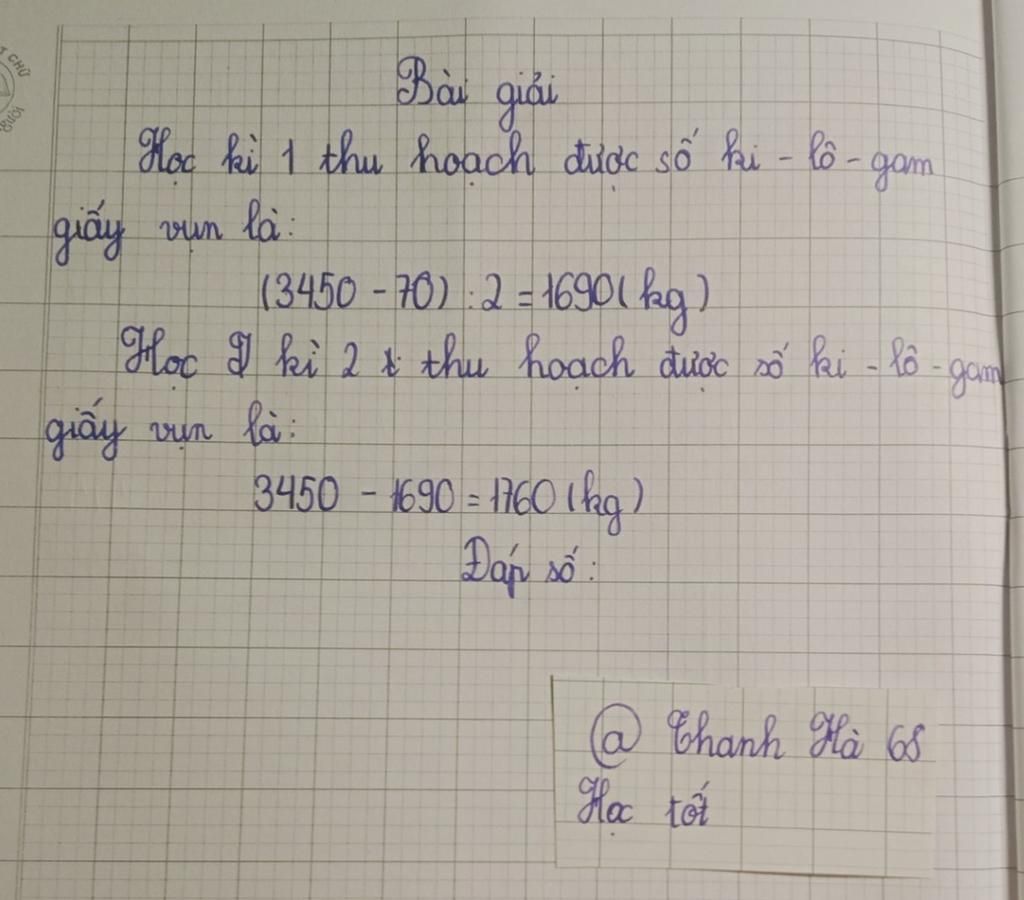 Bài giải
Học kì 1 thu hoạch được số ki-lô-gam
giấy vụn là:
(3450 - 70) : 2 = 1690 (kg)
Học kì 2 thu hoạch được số ki-lô-gam
giấy vụn là:
3450 - 1690 = 1760 (kg)
Đáp số:
@ Thanh Hà 68
Học tốt